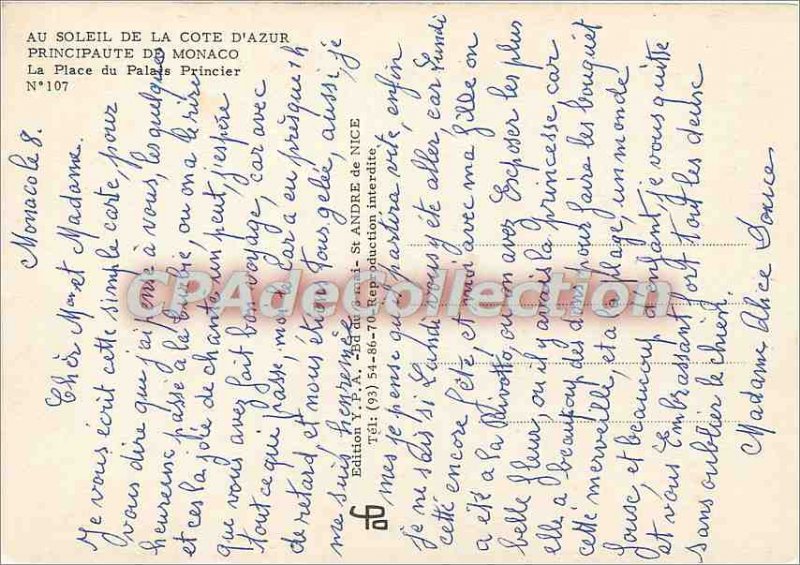 AU SOLEIL DE LA COTE D'AZUR
PRINCIPAUTE DE MONACO
La Place du Palais Princier
N° 107
Monaco le 8.
Chèr Mr et Madame.
Je vous écrit cette simple carte, pour
vous dire que j'ai pensé à vous, les quelques
heureuse passé a la buvbé, ou on a le rire
et ces la joie de chanté un peut, j'espère
que vous avez fait bon voyage, car avec
tout ce qui passe, moi le car a eu presque 1h
de retard, et nous étion tous gelée, aussi, je
me suis henrumée
mes je pense que sa partira vite, enfin
je ne sais si Lundi vous y été aller, car Lundi
cetté encore fête, et moi avec ma fille on
a été a la Rivotto, ou on avez Exposer les plus
belle fleur, ou il y avais la Princesse, car
elle a beaucoup des dons, pour faire les bouquet
cette merveille, et a village, un monde
fousc, et beaucoup d'enfant, je vous quitte
et vous Embrassant fort tout les deux
sans oublier le chien.
Madame Alice
Edition Y.P.A. - Bd du 8 mai - St ANDRE de NICE
Tél: (93) 54-86-70 - Reproduction interdite
CPAdeCollection